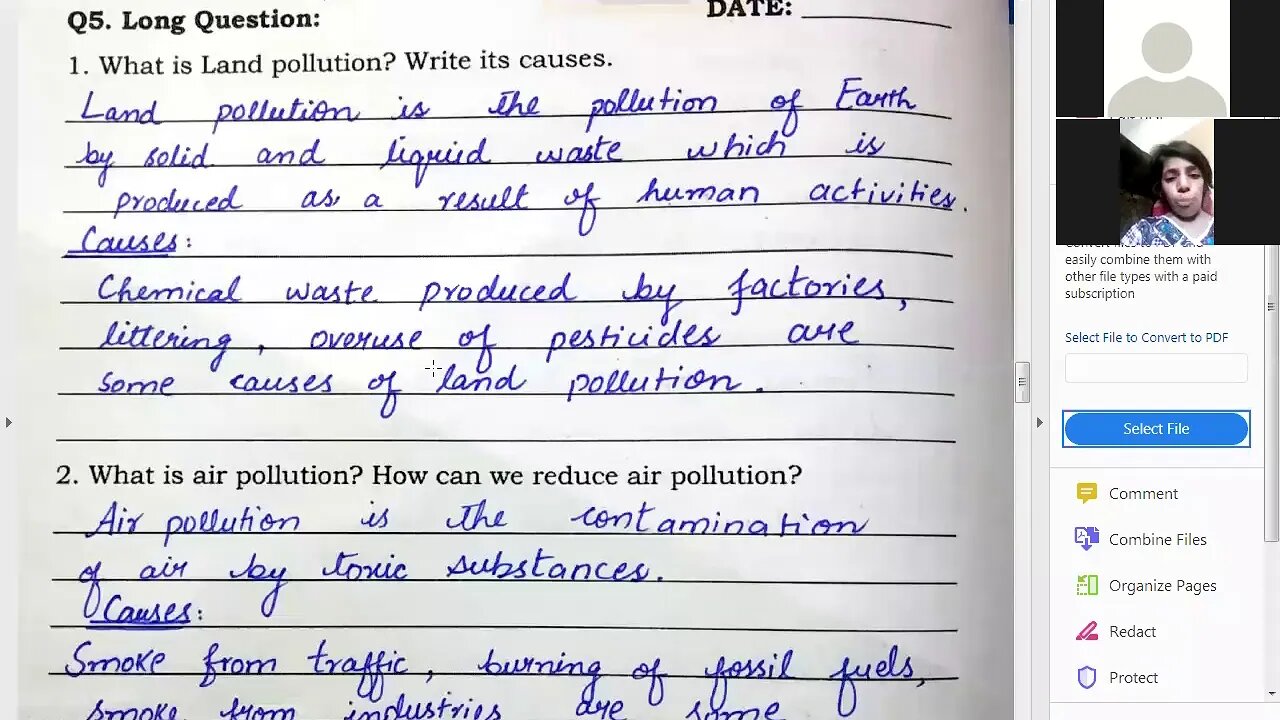 Q5. Long Question:
DATE:
1. What is Land pollution? Write its causes.
Land pollution is the pollution of Earth
by solid and liquid waste which is
produced as a result of human activities.
Causes:
Chemical waste produced by factories,
littering, overuse of pesticides are
some causes of land pollution.
2. What is air pollution? How can we reduce air pollution?
Air pollution is the contamination
of air by toxic substances.
Causes:
Smoke from traffic, burning of fossil fuels,
smoke from industries are some
easily combine them with
other file types with a paid
subscription
Select File to Convert to PDF
Select File
Comment
Combine Files
Organize Pages
Redact
Protect